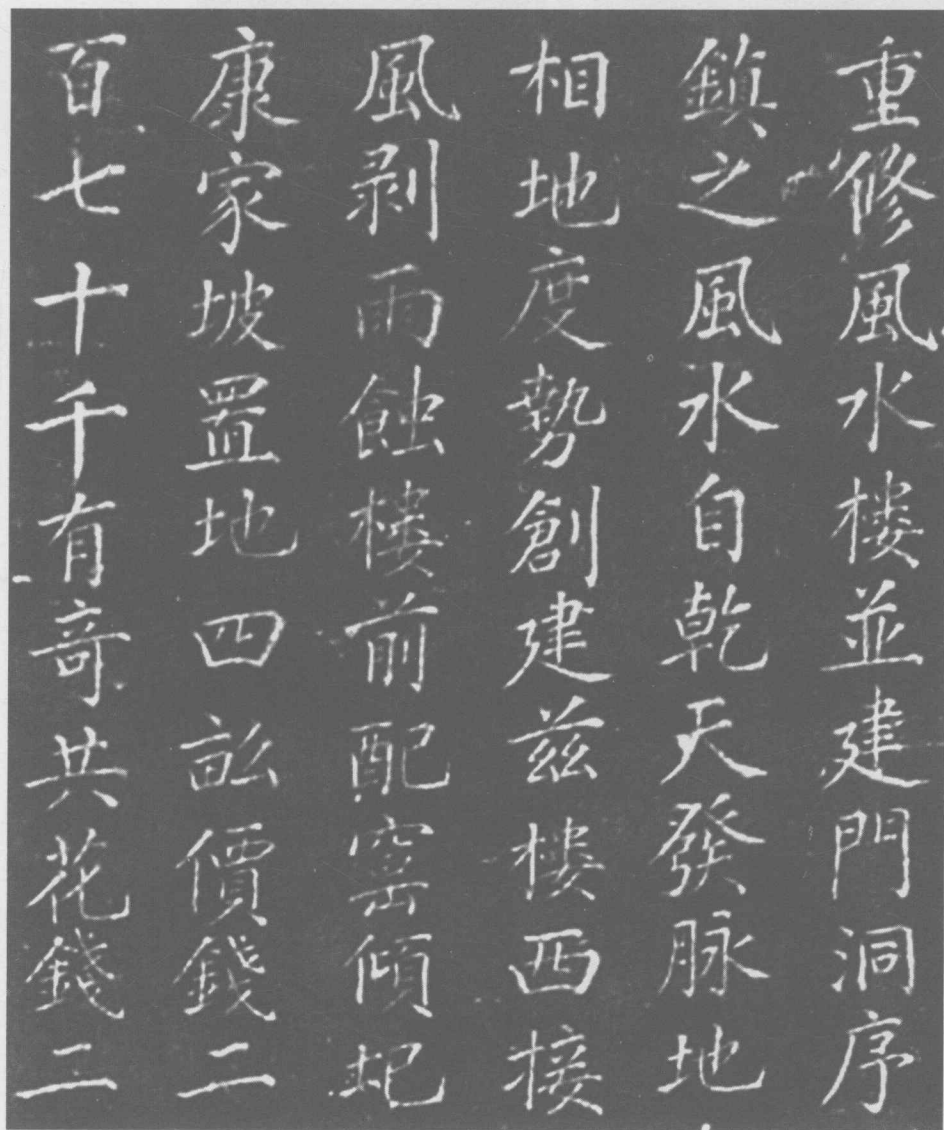 重修風水樓並建門洞序
鎮之風水自乾天發脉地
相地度勢創建兹樓西接
風剥雨蝕樓前配窰傾圯
康家坡置地四畆價錢二
百七十千有奇共花錢二